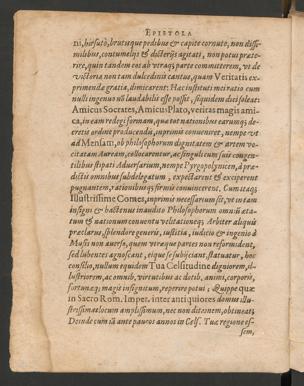 EPISTOLA
ni, hirsuto, brutisque pedibus & capite cornuto, non dissi-
milibus, contumeliis & dicteriis agitati, non potui præte-
rire, quin tandem eos ab utraq; parte committerem, vt de
victoria non tam dulcedinis cantus, quam Veritatis ex-
primendæ gratia, dimicarent: Hac institutii mei ratio cum
nulli ingenuo nō laudabilis esse possit, siquidem dici soleat:
Amicus Socrates, Amicus Plato, veritas magis ami-
ca, in eam redegi formam, qua tot nationibus earumq; de-
cretis ordine producendis, inprimis conveniret, nempe vt
ad Mensam, ob philosophorum dignitatem & artem vo-
citatam Auream, collocarentur, ac singuli cum suis congen-
tilibus stipati Adversarium, nempe Pyrgopolynicen, à præ-
dictis omnibus subdelegatum, expectarent & exciperent
pugnantem, rationibusq; firmis convincerent. Cum itaq;
Illustrissime Comes, inprimis necessarium sit, vt in tam
insigni & hactenus inaudito Philosophorum omniū æta-
tum & nationum conventu velitationeq; Arbiter aliquis
præclarus, splendore generis, iustitia, iudicio & ingenio à
Musis non auerso, quem vtraque partes non reformident,
sed lubentes agnoscant, eique se subijciant, statuatur, hoc
consilio, nullum equidem Tua Celsitudine digniorem, il-
lustriorem, ac omnib. virtutibus ac dotib. animi, corporis,
fortunæq; magis insignitum, reperire potui; Quippe quæ
in Sacro Rom. Imper. inter antiquiores domus illu-
strissimæ locum amplissimum, nec non ditionem, obtineat;
Deinde cum iā ante paucos annos in Cels. Tuæ regione es-
sem,